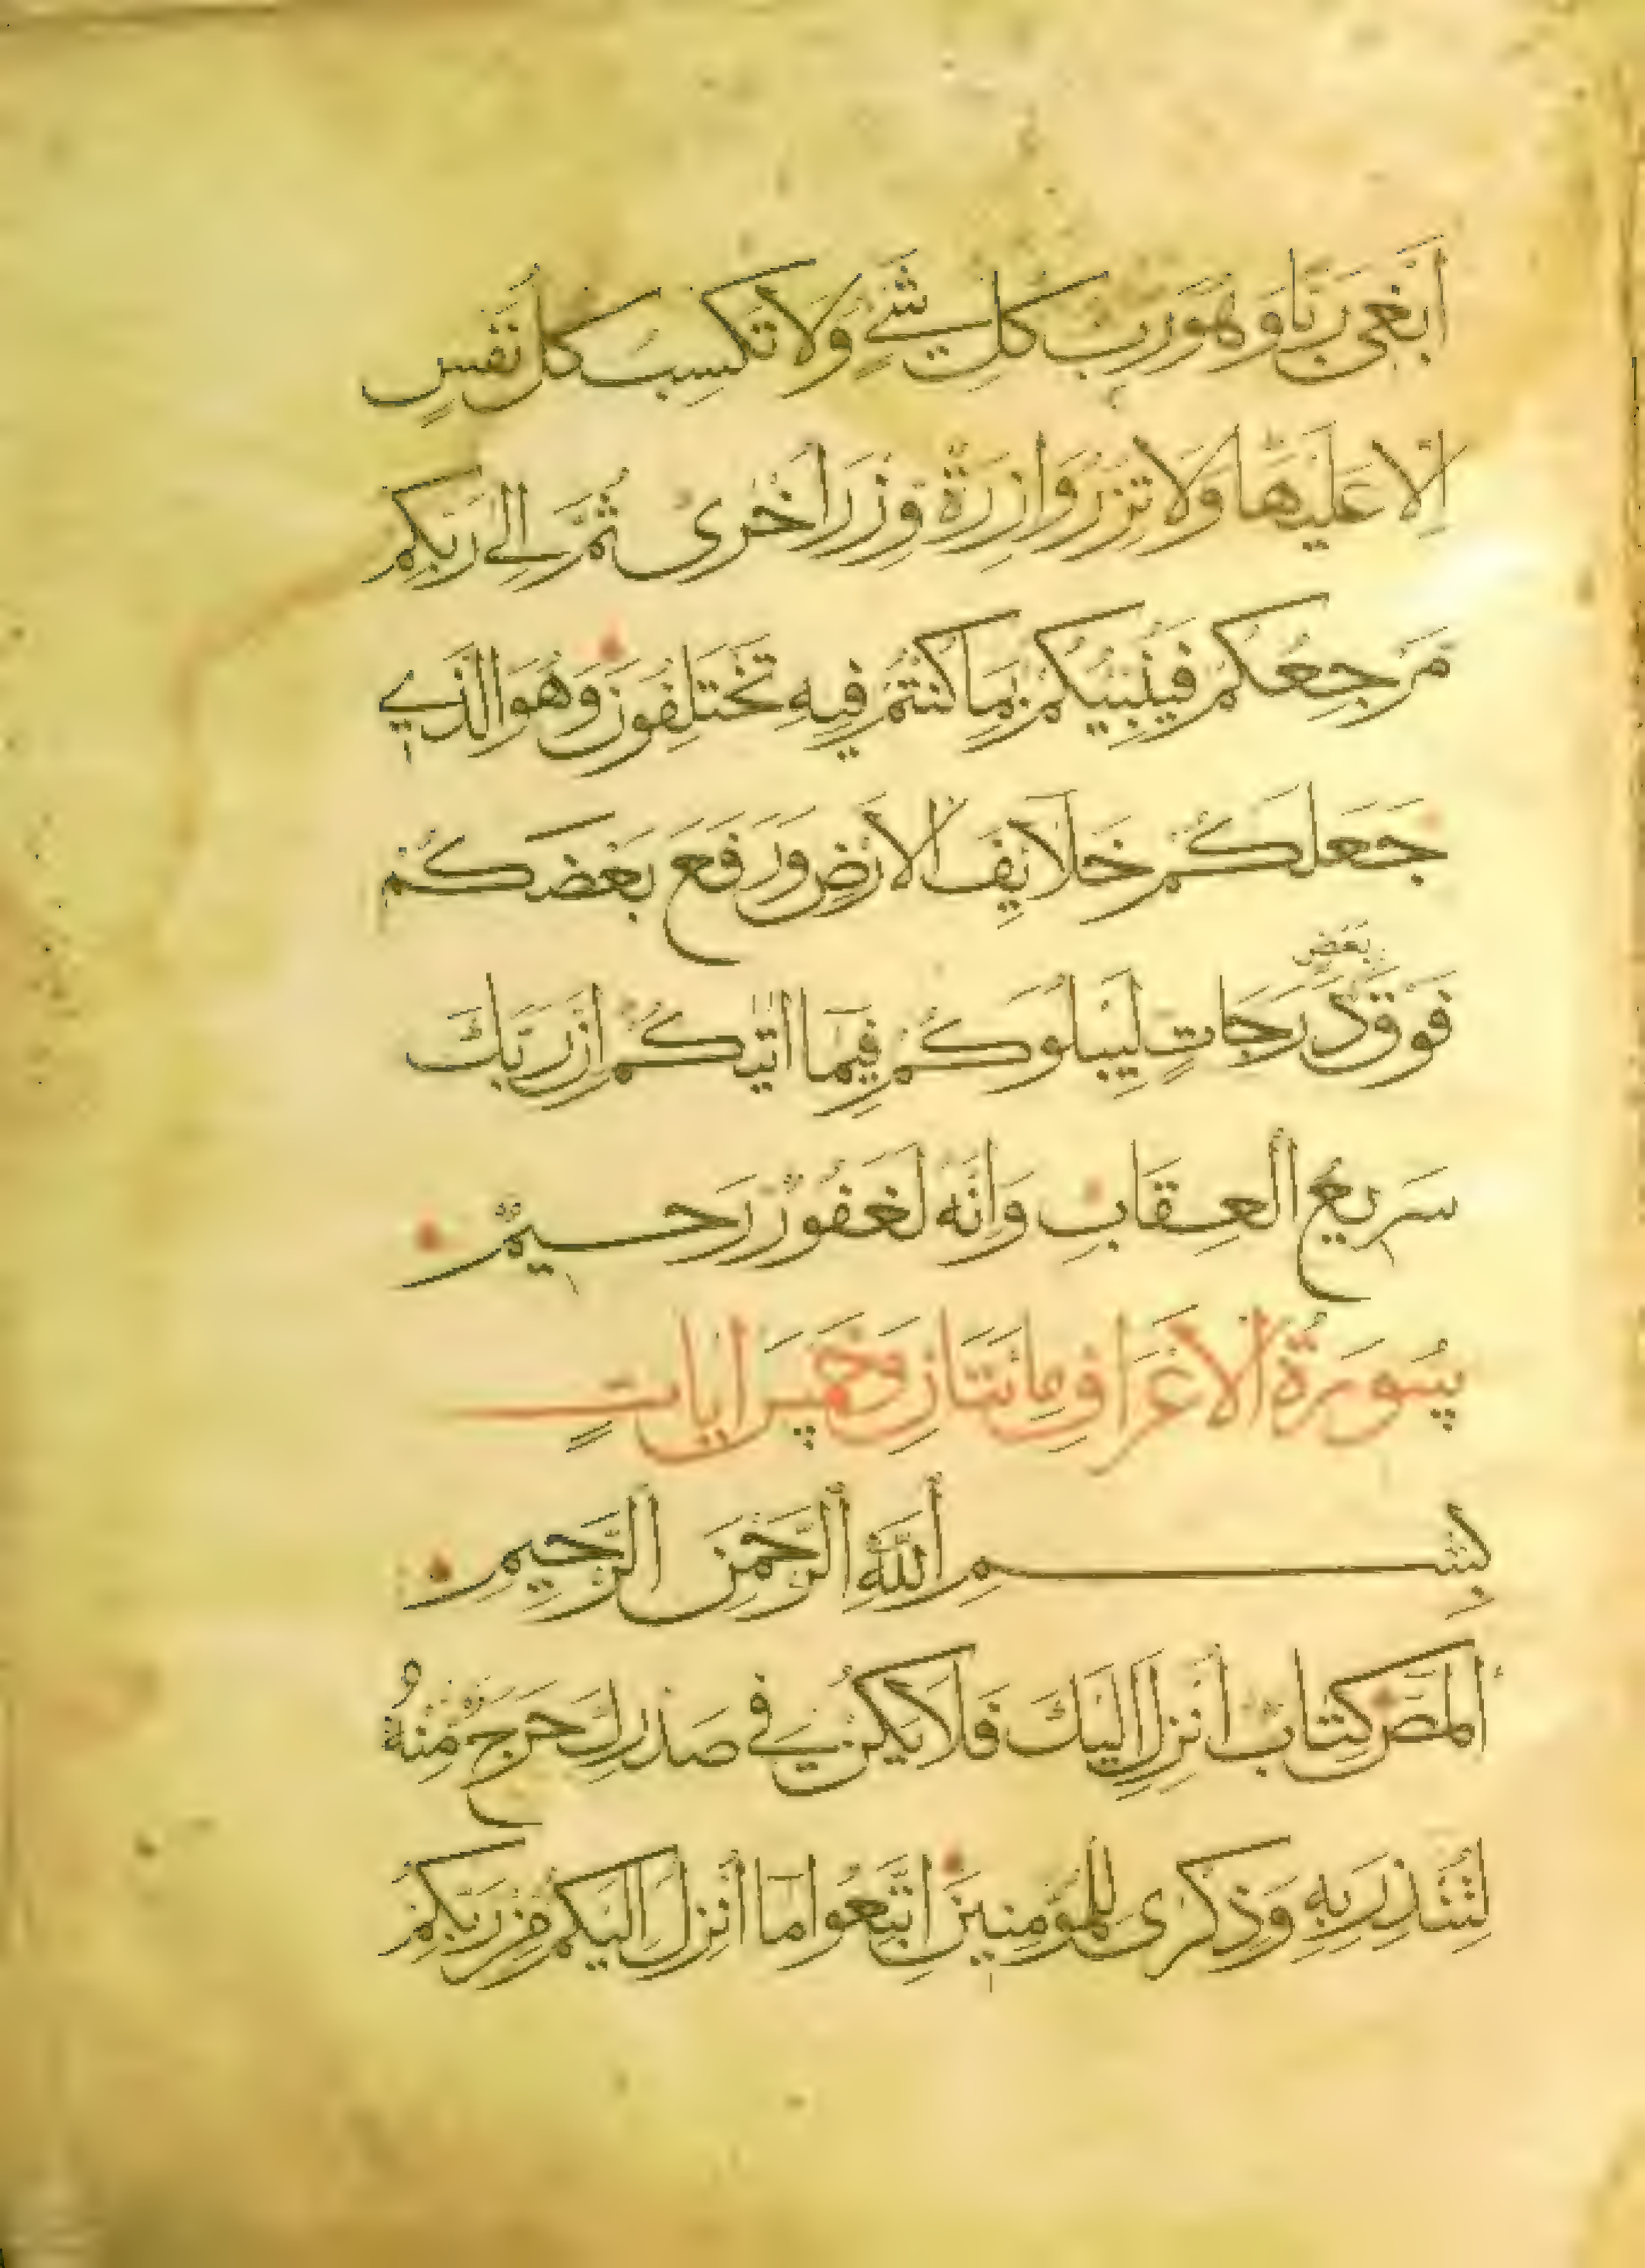 اَبْغِى رَبًّا وَهُوَ رَبُّ كُلِّ شَىْءٍ وَلَا تَكْسِبُ كُلُّ نَفْسٍ
اِلَّا عَلَيْهَا وَلَا تَزِرُ وَازِرَةٌ وِزْرَ اُخْرٰى ثُمَّ اِلٰى رَبِّكُمْ
مَرْجِعُكُمْ فَيُنَبِّيُكُمْ بِمَا كُنْتُمْ فِيهِ تَخْتَلِفُونَ وَهُوَ الَّذِي
جَعَلَكُمْ خَلَايِفَ الْاَرْضِ وَرَفَعَ بَعْضَكُمْ
فَوْقَ بَعْضٍ دَرَجَاتٍ لِيَبْلُوَكُمْ فِيمَا اٰتٰيكُمْ اِنَّ رَبَّكَ
سَرِيعُ الْعِقَابِ وَاِنَّهُ لَغَفُورٌ رَحِيمٌ
سُورَةُ الْاَعْرَافِ مِائَتَانِ وَخَمْسُ اٰيَاتٍ
بِسْمِ اللّٰهِ الرَّحْمٰنِ الرَّحِيمِ
الٓمٓصٓ كِتَابٌ اُنْزِلَ اِلَيْكَ فَلَا يَكُنْ فِي صَدْرِكَ حَرَجٌ مِنْهُ
لِتُنْذِرَ بِهِ وَذِكْرٰى لِلْمُؤْمِنِينَ اِتَّبِعُوا مَا اُنْزِلَ اِلَيْكُمْ مِنْ رَبِّكُمْ